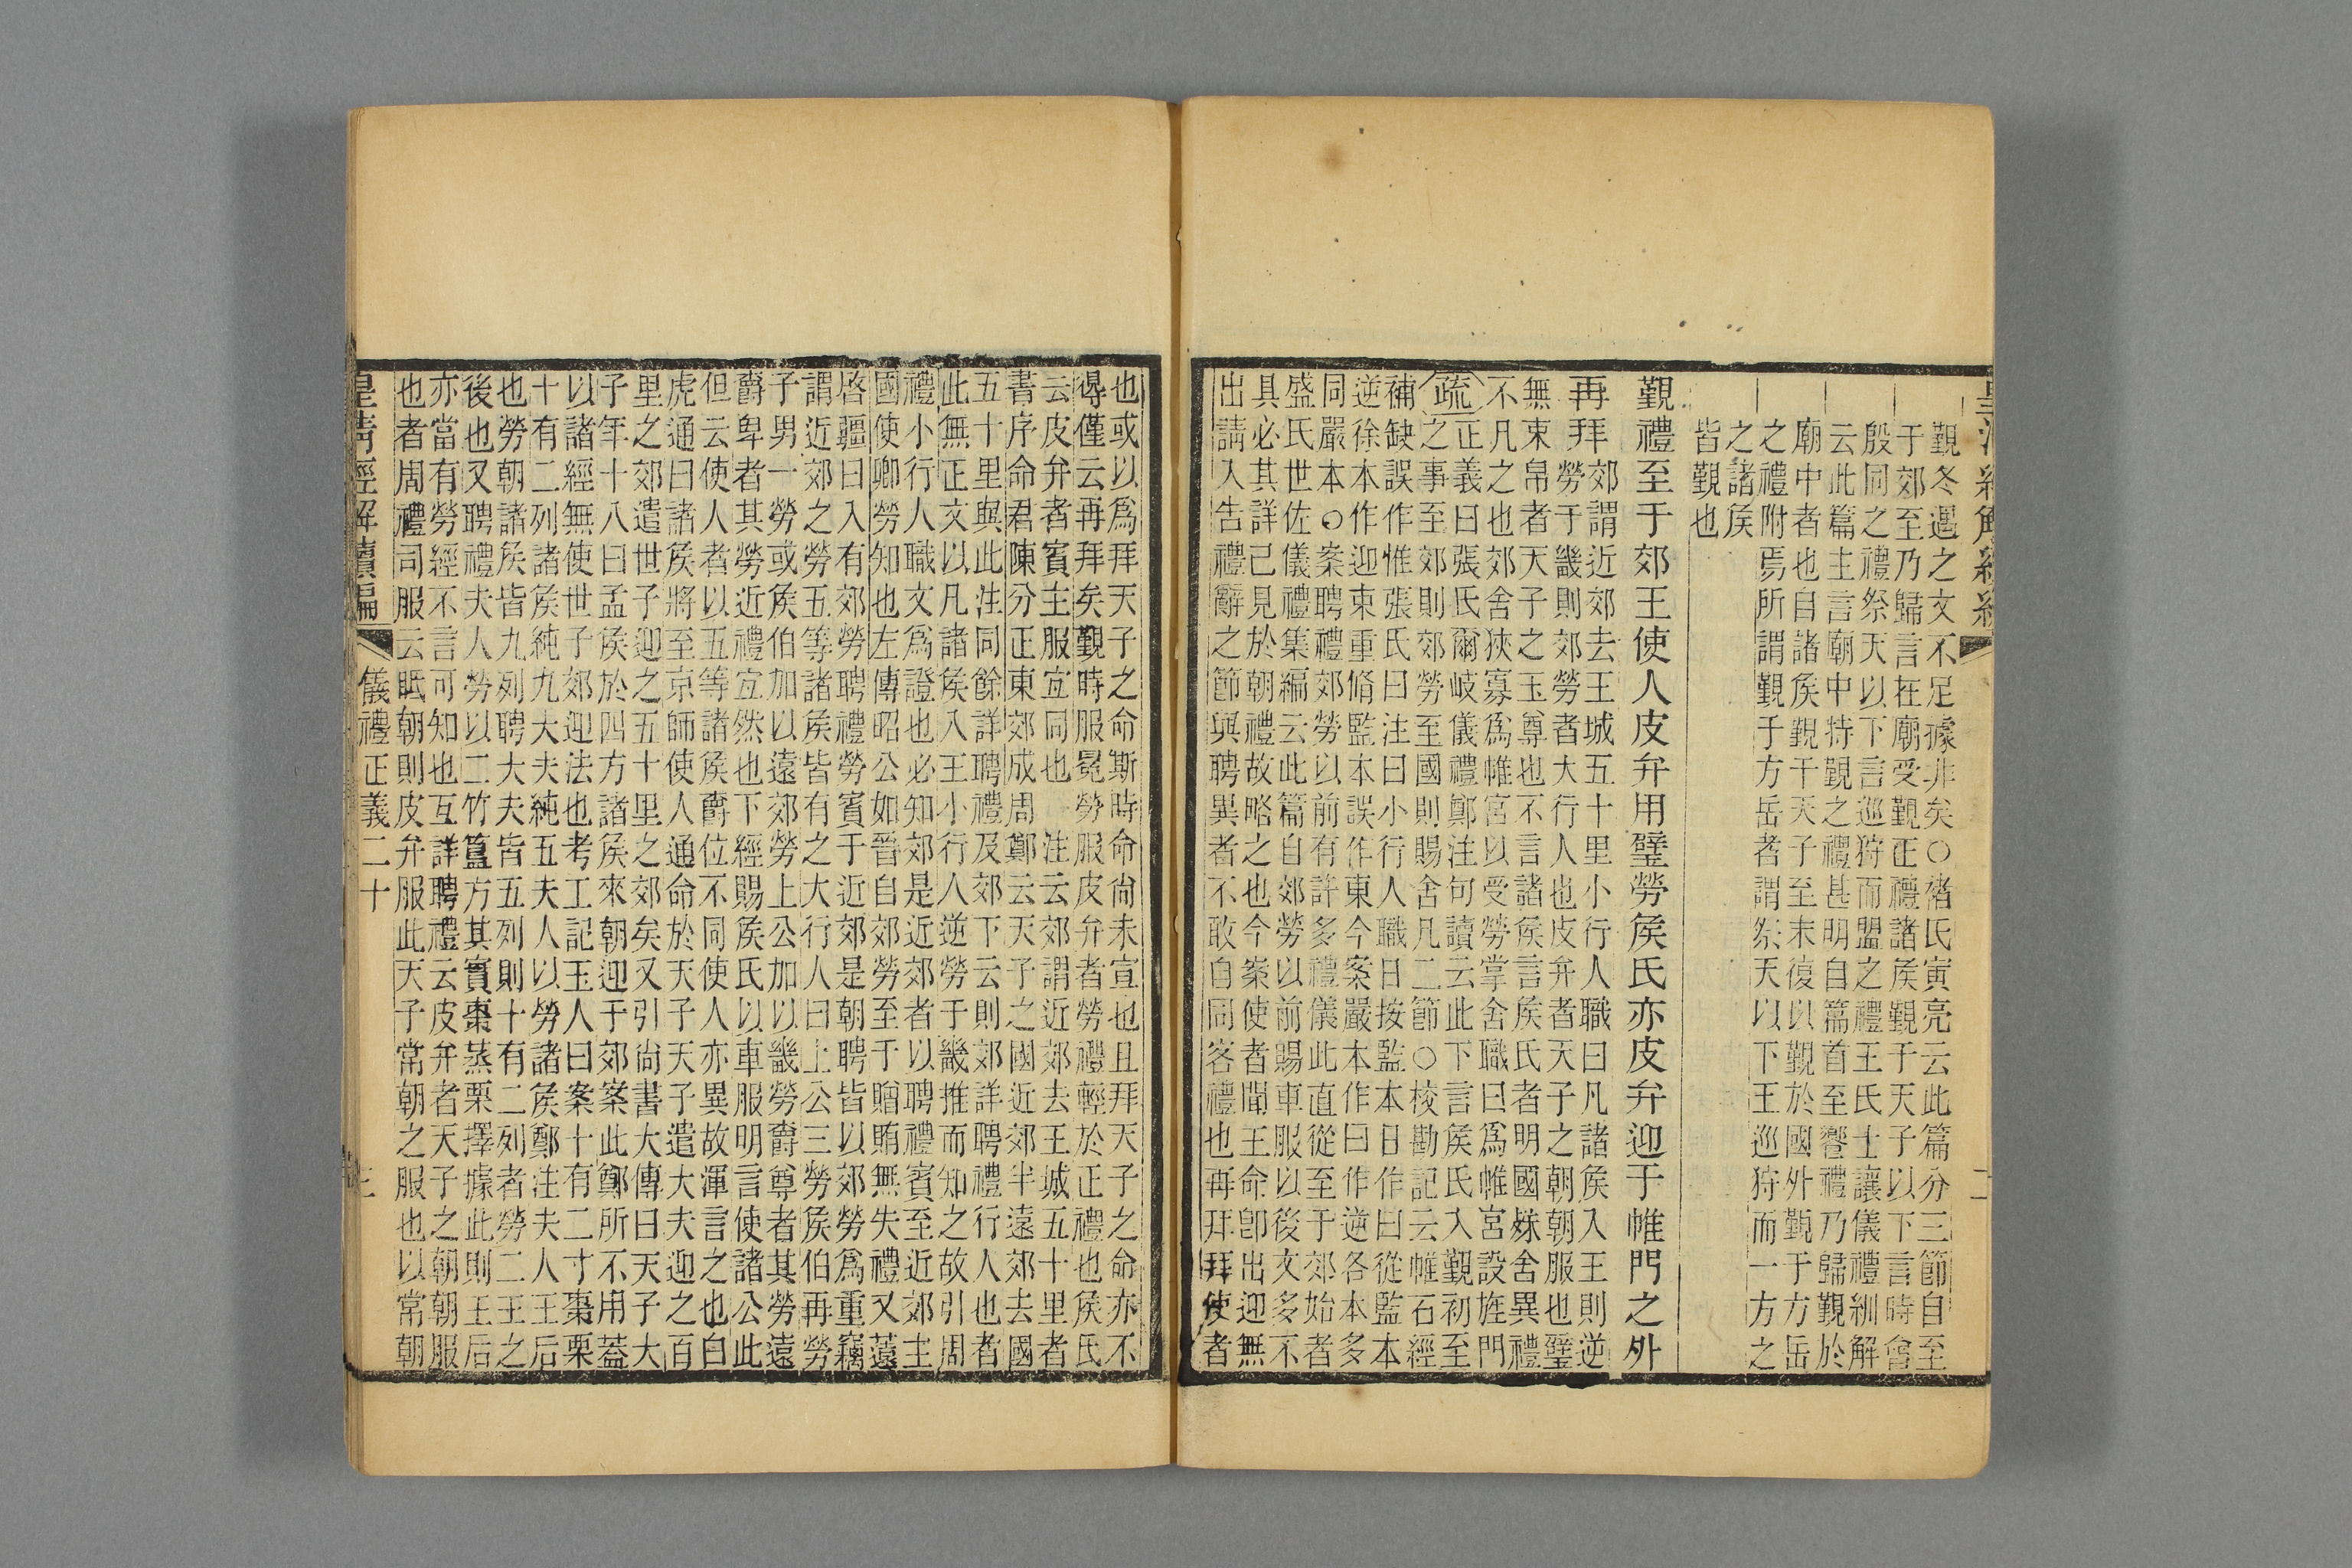 覲冬遇之文不足據非矣○褚氏寅亮云此篇分三節自至
于郊至乃歸言在廟受覲正禮諸侯覲于天子以下言時會
殷同之禮祭天以下言巡狩而盟之禮王氏士讓儀禮紃解
云此篇主言廟中特覲之禮甚明自篇首至饗禮乃歸覲於
廟中者也自諸侯覲于天子至末復以覲於國外覲于方岳
之禮附焉所謂覲于方岳者謂祭天以下王巡狩而一方之
之諸侯
皆覲也
覲禮至于郊王使人皮弁用璧勞侯氏亦皮弁迎于帷門之外
再拜
郊謂近郊去王城五十里小行人職曰凡諸侯入王則逆
勞于畿則郊勞者大行人也皮弁者天子之朝朝服也璧
無束帛者天子之玉尊也不言諸侯言侯氏者明國殊舍異禮
不凡之也郊舍狹寡爲帷宮以受勞掌舍職曰爲帷宮設旌門
疏正義曰張氏爾岐儀禮鄭注句讀云此下言侯氏入覲初至
之事至郊則郊勞至國則賜舍凡二節○校勘記云帷石經
補缺誤作惟張氏曰注曰小行人職日按監本日作曰從監本
逆徐本作迎束重脩監本誤作東今案嚴本作曰作逆各本多
同嚴本○案聘禮郊勞以前有許多禮儀此直從至于郊始者
盛氏世佐儀禮集編云此篇自郊勞以前賜車服以後文多不
具必其詳已見於朝禮故略之也今案使者聞王命卽出迎無
出請入告禮辭之節與聘異者不敢自同客禮也再拜拜使者
也或以爲拜天子之命斯時命尚未宣也且拜天子之命亦不
得僅云再拜矣覲時服冕勞服皮弁者勞禮輕於正禮也侯氏
云皮弁者賓主服宜同也　注云郊謂近郊去王城五十里者
書序命君陳分正東郊成周鄭云天子之國近郊半遠郊去國
五十里與此注同餘詳聘禮及郊下云則郊詳聘禮行人也者
此無正文以凡諸侯入王小行人逆勞于畿推而知之故引周
禮小行人職文爲證也必知郊是近郊者以聘禮賓至近郊主
國使卿勞知也左傳昭公如晉自郊勞至于贈賄無失禮又薳
啓疆曰入有郊勞聘禮勞賓于近郊是朝聘皆以郊勞爲重竊
謂近郊之勞五等諸侯皆有之大行人曰上公三勞侯伯再勞
子男一勞或侯伯加以遠郊勞上公加以畿勞爵尊者其勞遠
爵卑者其勞近禮宜然也下經賜侯氏以車服明言使諸公此
但云使人者以五等諸侯爵位不同使人亦異故渾言之也白
虎通曰諸侯將至京師使人通命於天子天子遣大夫迎之百
里之郊遣世子迎之五十里之郊矣又引尚書大傳曰天子大
子年十八曰孟侯於四方諸侯來朝迎于郊案此鄭所不用蓋
以諸經無使世子郊迎法也考工記玉人曰案十有二寸棗栗
十有二列諸侯純九大夫純五夫人以勞諸侯鄭注夫人王后
也勞朝諸侯皆九列聘大夫皆五列則十有二列者勞二王之
後也又聘禮夫人勞以二竹簋方其實棗蒸栗擇據此則王后
亦當有勞經不言可知也互詳聘禮云皮弁者天子之朝朝服
也者周禮司服云眡朝則皮弁服此天子常朝之服也以常朝
皇清經解續編　儀禮正義二十　三